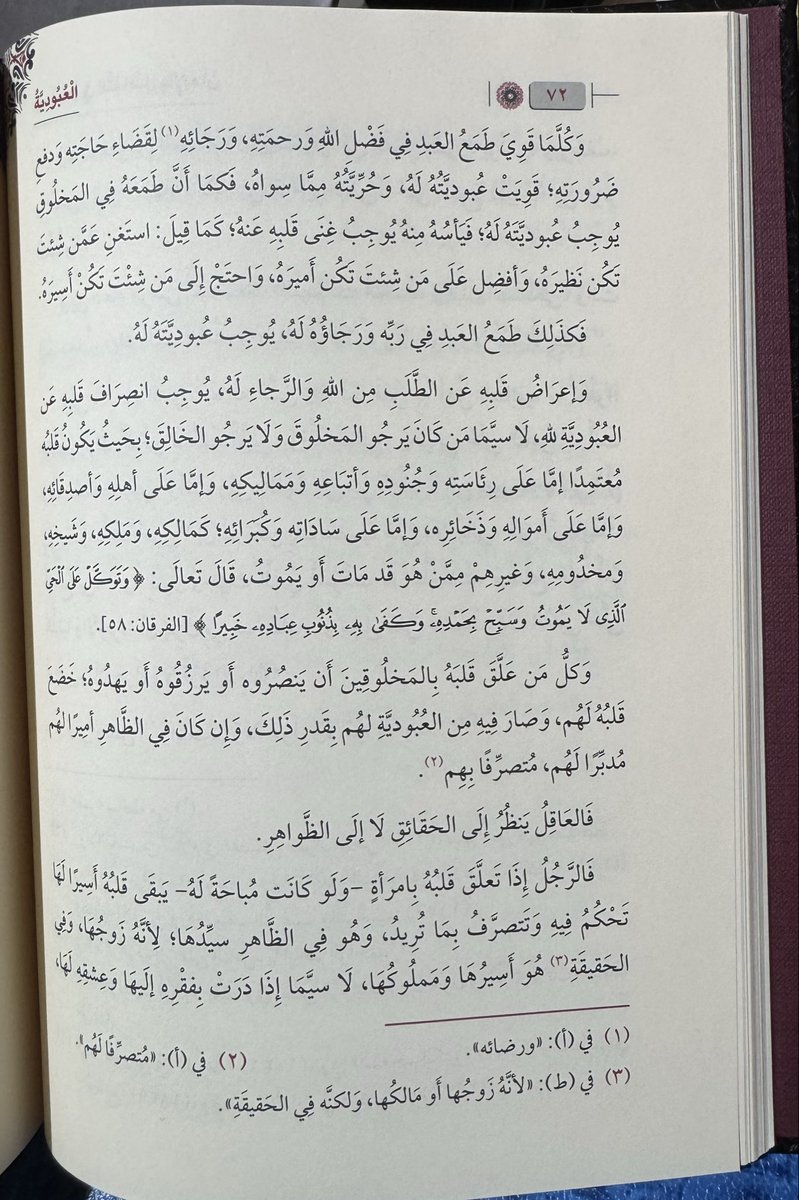 ٧٢
الْعُبُودِيَّةُ
وَكُلَّمَا قَوِيَ طَمَعُ العَبدِ فِي فَضْلِ اللهِ وَرحمَتِهِ، وَرَجَائِهِ(١) لِقَضَاءِ حَاجَتِهِ وَدفعِ
ضَرُورَتِهِ؛ قَوِيَتْ عُبوديَّتُهُ لَهُ، وَحُرِّيَّتُهُ مِمَّا سِواهُ، فَكمَا أَنَّ طَمَعَهُ فِي المَخلُوقِ
يُوجِبُ عُبوديَّتَهُ لَهُ؛ فَيَأسُهُ مِنهُ يُوجِبُ غِنَى قَلبِهِ عَنهُ؛ كَمَا قِيلَ: استَغنِ عَمَّن شِئتَ
تَكُن نَظيرَهُ، وَأفضِل عَلَى مَن شِئتَ تَكُن أَميرَهُ، وَاحتَجْ إِلَى مَن شِئْتَ تَكُنْ أَسِيرَهُ.
فَكذَلِكَ طَمَعُ العَبدِ فِي رَبِّه وَرَجَاؤُهُ لَهُ، يُوجِبُ عُبودِيَّتَهُ لَهُ.
وَإعرَاضُ قَلبِهِ عَن الطَّلَبِ مِن اللهِ وَالرَّجاءِ لَهُ، يُوجِبُ انصِرَافَ قَلبِهِ عَن
العُبُودِيَّةِ للهِ، لَا سيَّمَا مَن كَانَ يَرجُو المَخلُوقَ وَلَا يَرجُو الخَالِقَ؛ بِحَيثُ يَكُونُ قَلبُهُ
مُعتَمِدًا إمَّا عَلَى رِئَاسَتِه وَجُنُودِهِ وَأتبَاعِهِ وَمَمَالِيكِهِ، وَإمَّا عَلَى أهلِهِ وَأصدِقَائِهِ،
وَإمَّا عَلَى أَموَالِهِ وَذَخَائِرِه، وَإمَّا عَلَى سَادَاتِه وَكُبَرَائِهِ؛ كَمَالِكِهِ، وَمَلِكِهِ، وَشَيخِهِ،
وَمَخدُومِهِ، وَغَيرِهِمْ مِمَّنْ هُوَ قَد مَاتَ أَو يَمُوتُ، قَالَ تَعَالَى: ﴿ وَتَوَكَّلْ عَلَى ٱلْحَيِّ
ٱلَّذِى لَا يَمُوتُ وَسَبِّحْ بِحَمْدِهِۦۚ وَكَفَىٰ بِهِۦ بِذُنُوبِ عِبَادِهِۦ خَبِيرًا ﴾ [الفرقان: ٥٨].
وَكلُّ مَن عَلَّقَ قَلبَهُ بِالمَخلُوقِينَ أَن يَنصُرُوه أَو يَرزُقُوهُ أَو يَهدُوهُ؛ خَضَعَ
قَلبُهُ لَهُم، وَصَارَ فِيهِ مِن العُبُوديَّةِ لهُم بِقَدرِ ذَلِكَ، وَإِن كَانَ فِي الظَّاهرِ أَمِيرًا لهُم
مُدبِّرًا لَهُم، مُتصرِّفًا بِهِم(٢).
فَالعَاقِلُ يَنظُرُ إِلَى الحَقَائِقِ لَا إِلَى الظَّواهِرِ.
فَالرَّجُلُ إِذَا تَعلَّقَ قَلبُهُ بِامرَأةٍ -وَلَو كَانَت مُباحَةً لَهُ- يَبقَى قَلبُهُ أَسِيرًا لَهَا
تَحْكُمُ فِيهِ وَتَتصرَّفُ بِمَا تُرِيدُ، وَهُو فِي الظَّاهرِ سيِّدُهَا؛ لِأنَّهُ زَوجُهَا، وَفِي
الحَقيقَةِ(٣) هُوَ أَسِيرُهَا وَمَملُوكُهَا، لَا سيَّمَا إِذَا دَرَتْ بِفقْرِهِ إلَيهَا وَعِشقِهِ لَهَا،
(١) في (أ): «ورضائه». (٢) في (أ): «مُتصرِّفًا لَهُم».
(٣) في (ط): «لأنَّهُ زَوجُها أَو مَالكُها، وَلكنَّه فِي الحَقيقَةِ».